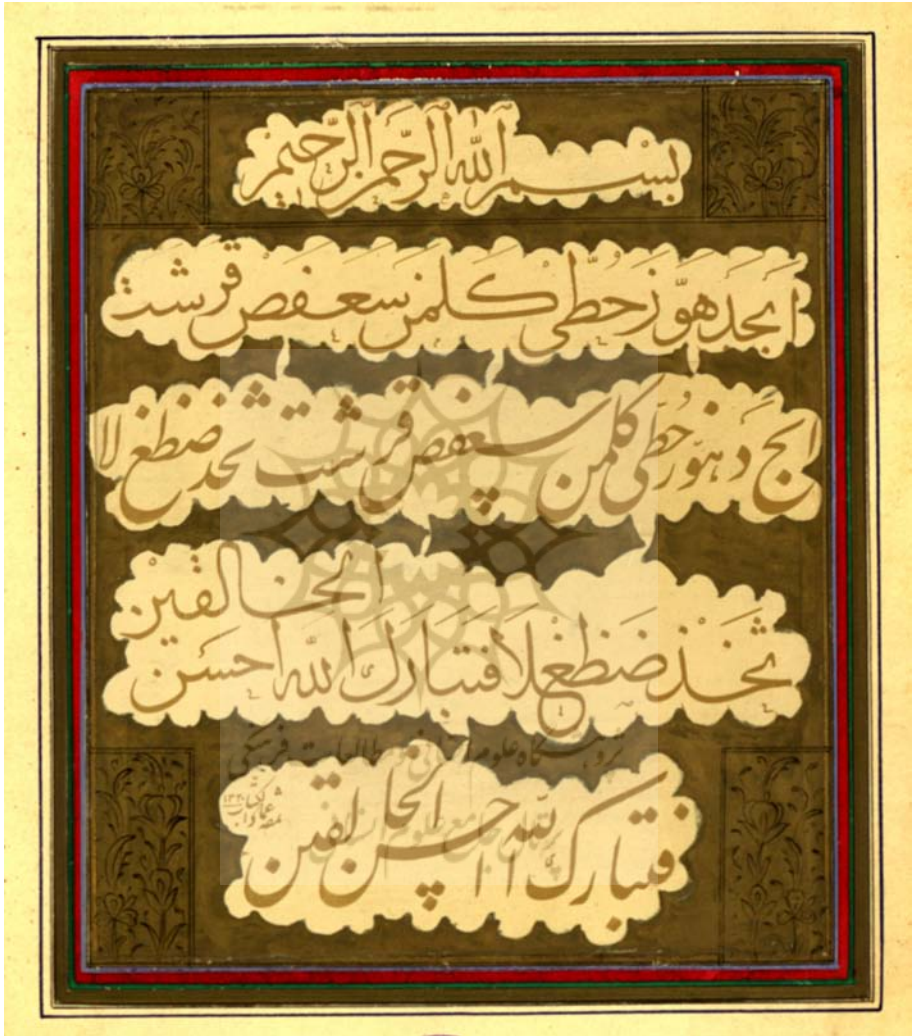 بسم الله الرحمن الرحيم
ابجد هوز حطي كلمن سعفص قرشت
ابجد هوز حطي كلمن سعفص قرشت ثخذ ضظغ لا
الخالقين
ثخذ ضظغلا فتبارك الله احسن
پژوهشگاه علوم انسانی و مطالعات فرهنگی
فتبارك الله احسن الخالقين
پرتال جامع علوم انسانی